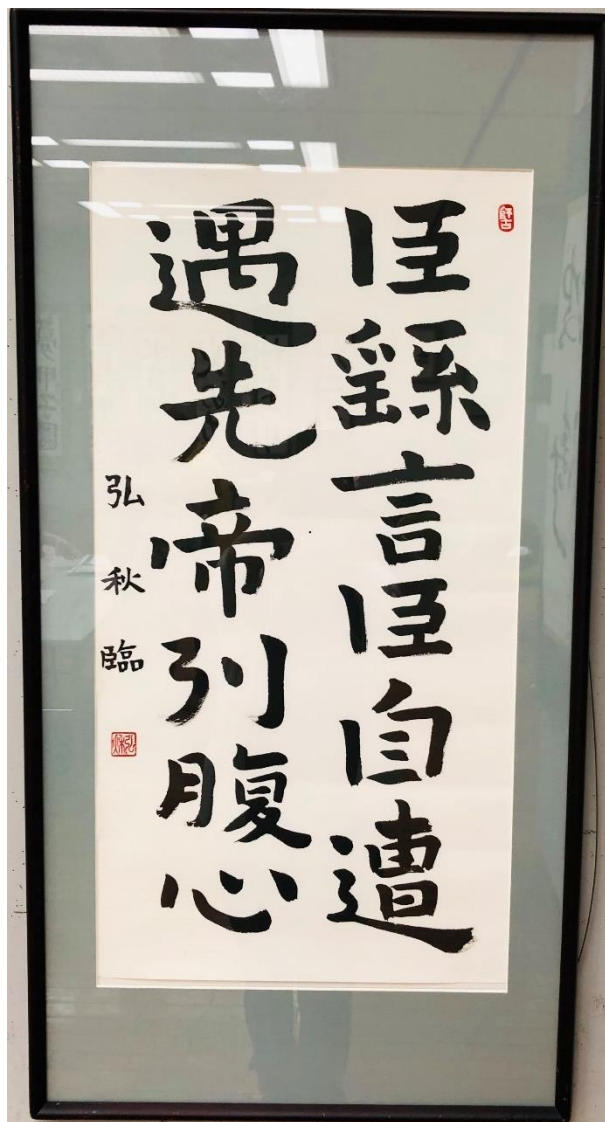 臣繇言臣自遭
遇先帝列腹心
弘秋臨